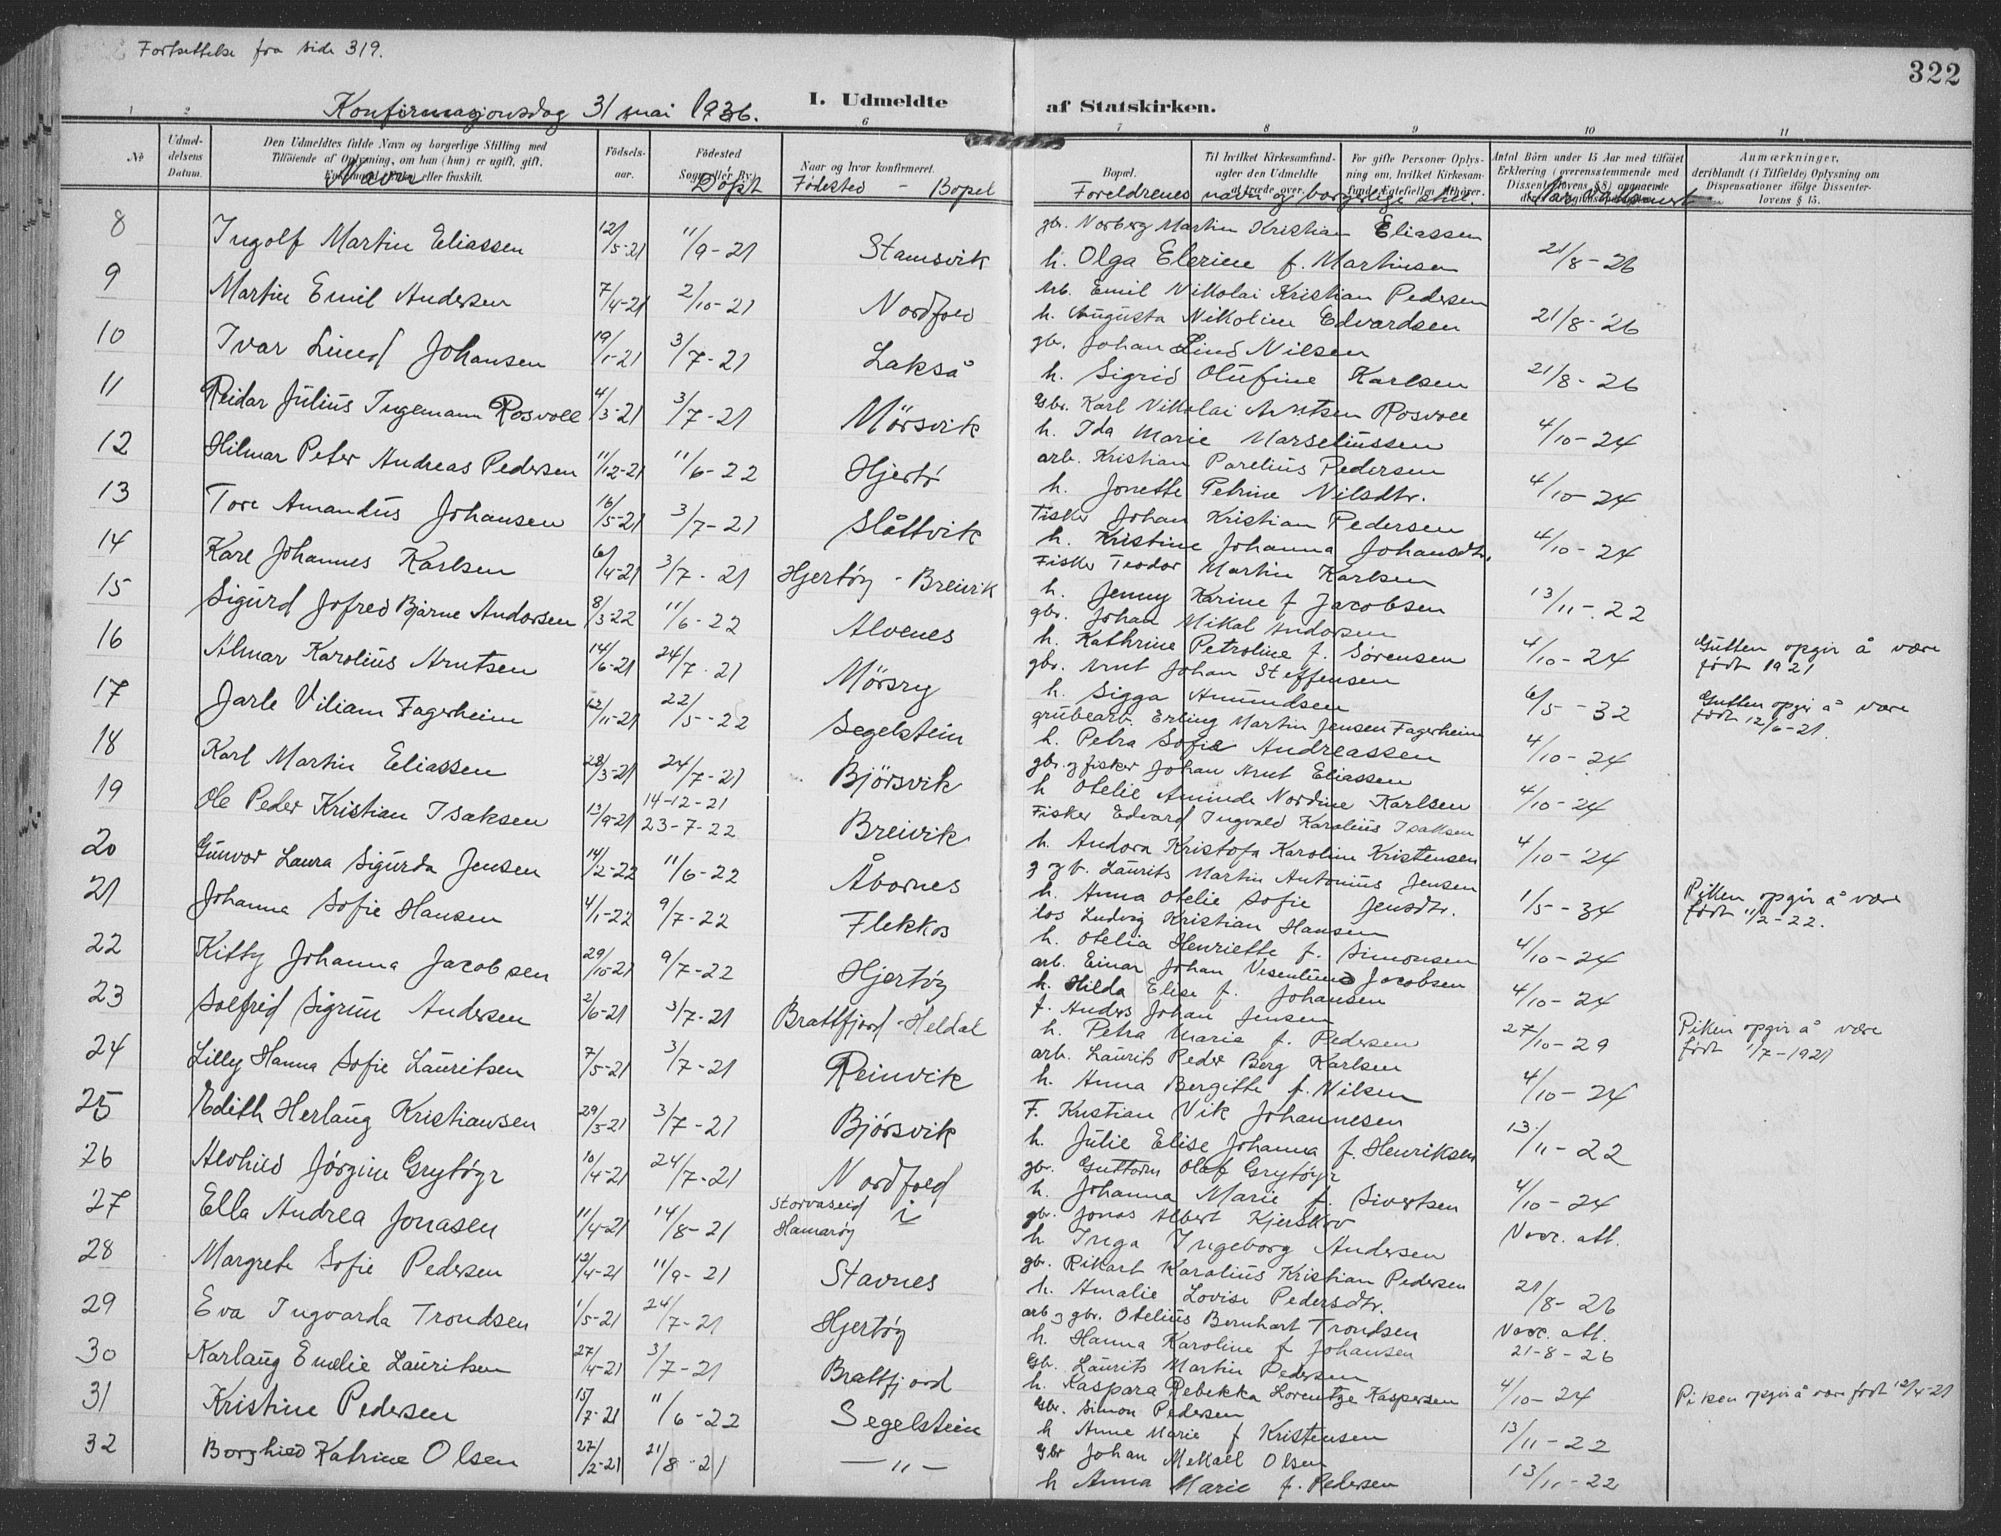 Fortsettelse fra side 319.
322
Konfirmasjonsdag 31 mai 1936.
I. Udmeldte af Statskirken.
1 2 6 7 8 9 10 11
№ Udmeldelsens Datum. Den Udmeldtes fulde Navn og borgerlige Stilling med Tilføiende af Oplysning, om han (hun) er ugift, gift, Enkemand eller fraskilt. Fødselsaar. Fødested Naar og hvor konfirmeret. Bopæl. Til hvilket Kirkesamfund agter den Udmeldte at træde over. For gifte Personer Oplysning om, hvilket Kirkesamfund Egtefællen tilhører. Antal Børn under 15 Aar med tilføiet Erklæring (overensstemmende med Dissenterlovens § 8) angaaende Anmærkninger, deriblandt (i Tilfælde) Oplysning om Dispensationer ifølge Dissenterlovens § 15.
Navn Døpt Fødested - Bopel Foreldrenes navn og borgerlige still. Når vaksinert
8 Ingolf Martin Eliassen 12/5-21 11/9-21 Stamsvik gbr. Norberg Martin Kristian Eliassen
h. Olga Elerine f. Martinsen 21/8-26
9 Martin Emil Andersen 7/4-21 2/10-21 Nordfold arb. Emil Nikolai Kristian Pedersen
h. Augusta Nikoline Edvardsen 21/8-26
10 Ivar Lined Johansen 19/1-21 3/7-21 Lakså gbr. Johan Lind Nilsen
h. Sigrid Olufine Karlsen 21/8-26
11 Reidar Julius Ingemann Rosvoll 4/3-21 3/7-21 Mörsvik Gbr. Karl Nikolai Arntsen Rosvoll
h. Ida Marie Marseliussen 4/10-24
12 Hilmar Peter Andreas Pedersen 11/12-21 11/6-22 Hjertö arb. Kristian Parelius Pedersen
h. Jonette Petrine Nilsdtr. 4/10-24
13 Tore Amandus Johansen 16/5-21 3/7-21 Slåttvik Fisker Johan Kristian Pedersen
h. Kristine Johanna Johansdtr. 4/10-24
14 Karl Johannes Karlsen 6/4-21 3/7-21 Hjertöy - Breivik Fisker Teodor Martin Karlsen
h. Jenny Karine f Jacobsen 13/11-22
15 Sigurd Jofred Bjarne Andorsen 8/3-22 11/6-22 Alvenes gbr. Johan Mikal Andorsen
h. Kathrine Petroline f. Sørensen 4/10-24 Gutten opgir å være født 1921
16 Almar Karolius Arntsen 14/6-21 24/7-21 Mörsry gbr. Arnt Johan Steffensen
h. Sigga Amundsen 6/5-32 Gutten opgir å være født 12/6-21.
17 Jarle Viliam Fagerheim 12/11-21 22/5-22 Segelstein grubearb. Erling Martin Jensen Fagerheim
h. Petra Sofie Andreassen 4/10-24
18 Karl Martin Eliassen 28/3-21 24/7-21 Bjørsvik gbr. og fisker Johan Arnt Eliassen
h Otelie Aminde Nordine Karlsen 4/10-24
19 Ole Peder Kristian Isaksen 13/9-21 14-12-21 23-7-22 Breivik Fisker Edvard Ingvald Karolius Isaksen
h. Andora Kristofa Karoline Kristensen 4/10-24
20 Gunvor Laura Sigurda Jensen 14/2-22 11/6-22 Åbornes g og b. Laurits Martin Antonius Jensen
h. Anna Otelie Sofie Jensdtr. 1/5-34 Piken opgir å være født 11/2-22.
21 Johanna Sofie Hansen 4/1-22 9/7-22 Flekkos los Ludvig Kristian Hansen
h. Otelia Henriette f. Simonsen 4/10-24
22 Kitty Johanna Jacobsen 29/10-21 9/7-22 Hjertöy arb. Einar Johan Vesenlund Jacobsen
h. Hilda Elise f. Johansen 4/10-24
23 Solfrid Sigrun Andersen 2/6-21 3/7-21 Brattfjord - Heldal f. Anders Johan Jensen
h. Petra Marie f. Pedersen 27/10-29 Piken opgir å være født 1/7-1921
24 Lilly Hanna Sofie Lauritsen 7/5-21 3/7-21 Reinvik arb. Laurits Peder Berg Karlsen
h. Anna Bergitte f. Nilsen 4/10-24
25 Edith Herlaug Kristiansen 29/3-21 3/7-21 Bjørsvik F. Kristian Vik Johannesen
h. Julie Elise Johanna f. Henriksen 13/11-22
26 Alvhild Jørgine Grytöyr 10/4-21 24/7-21 Nordfold gbr. Guttorm Olaf Grytöyr
h. Johanna Marie f. Sivertsen 4/10-24
27 Ella Andrea Jonasen 11/4-21 14/8-21 Storvaseid i Hamaröy gbr. Jonas Albert Kjerskov
h Inga Ingeborg Andersen Navr. att.
28 Margrete Sofie Pedersen 13/4-21 11/9-21 Stavnes gbr. Rikart Karolius Kristian Pedersen
h. Amalie Lovise Pedersdtr. 21/8-26
29 Eva Ingvarda Trondsen 1/5-21 24/7-21 Hjertöy arb og gbr. Otelius Bernhart Trondsen Navr. att.
h. Hanna Karoline f Johansen 21-8-26
30 Karlaug Emelie Lauritsen 27/4-21 3/7-21 Brattfjord Gbr. Laurits Martin Pedersen
h. Kaspara Rebekka Lorentze Kaspersen 4/10-24 Piken opgir å være født 12/4-21
31 Kristine Pedersen 15/7-21 11/6-22 Segelstein Gbr. Simon Pedersen
h Anne Marie f Kristensen 13/11-22
32 Borghild Katrine Olsen 27/2-21 21/8-21 — " — Gbr Johan Mekael Olsen
h Anna Marie f. Pedersen 13/11-22